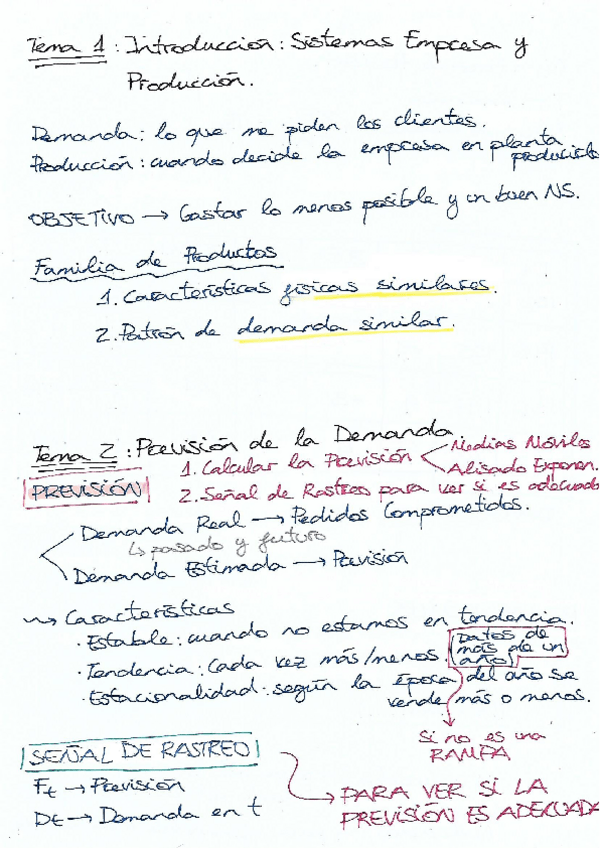 Tema 1: Introducción: Sistemas Empresa y
Producción.
Demanda: lo que me piden los clientes.
Producción: cuando decide la empresa en planta
OBJETIVO → Gastar lo menos posible y un buen NS.
Familia de Productos
1. Características físicas similares.
2. Patrón de demanda similar.
Tema 2: Previsión de la Demanda
PREVISIÓN
1. Calcular la Previsión
Medias Móviles
Alisado Exponen.
2. Señal de Rastreo para ver si es adecuada
Demanda Real → Pedidos Comprometidos.
↳ pasado y futuro
Demanda Estimada → Previsión
Características
· Estable: cuando no estamos en tendencia.
· Tendencia: Cada vez más/menos.
Datos de
más de un
año
· Estacionalidad: según la Época del año se
vende más o menos.
si no es una
RAMPA
SEÑAL DE RASTREO
Ft → Previsión
Dt → Demanda en t
PARA VER SI LA
PREVISIÓN ES ADECUADA